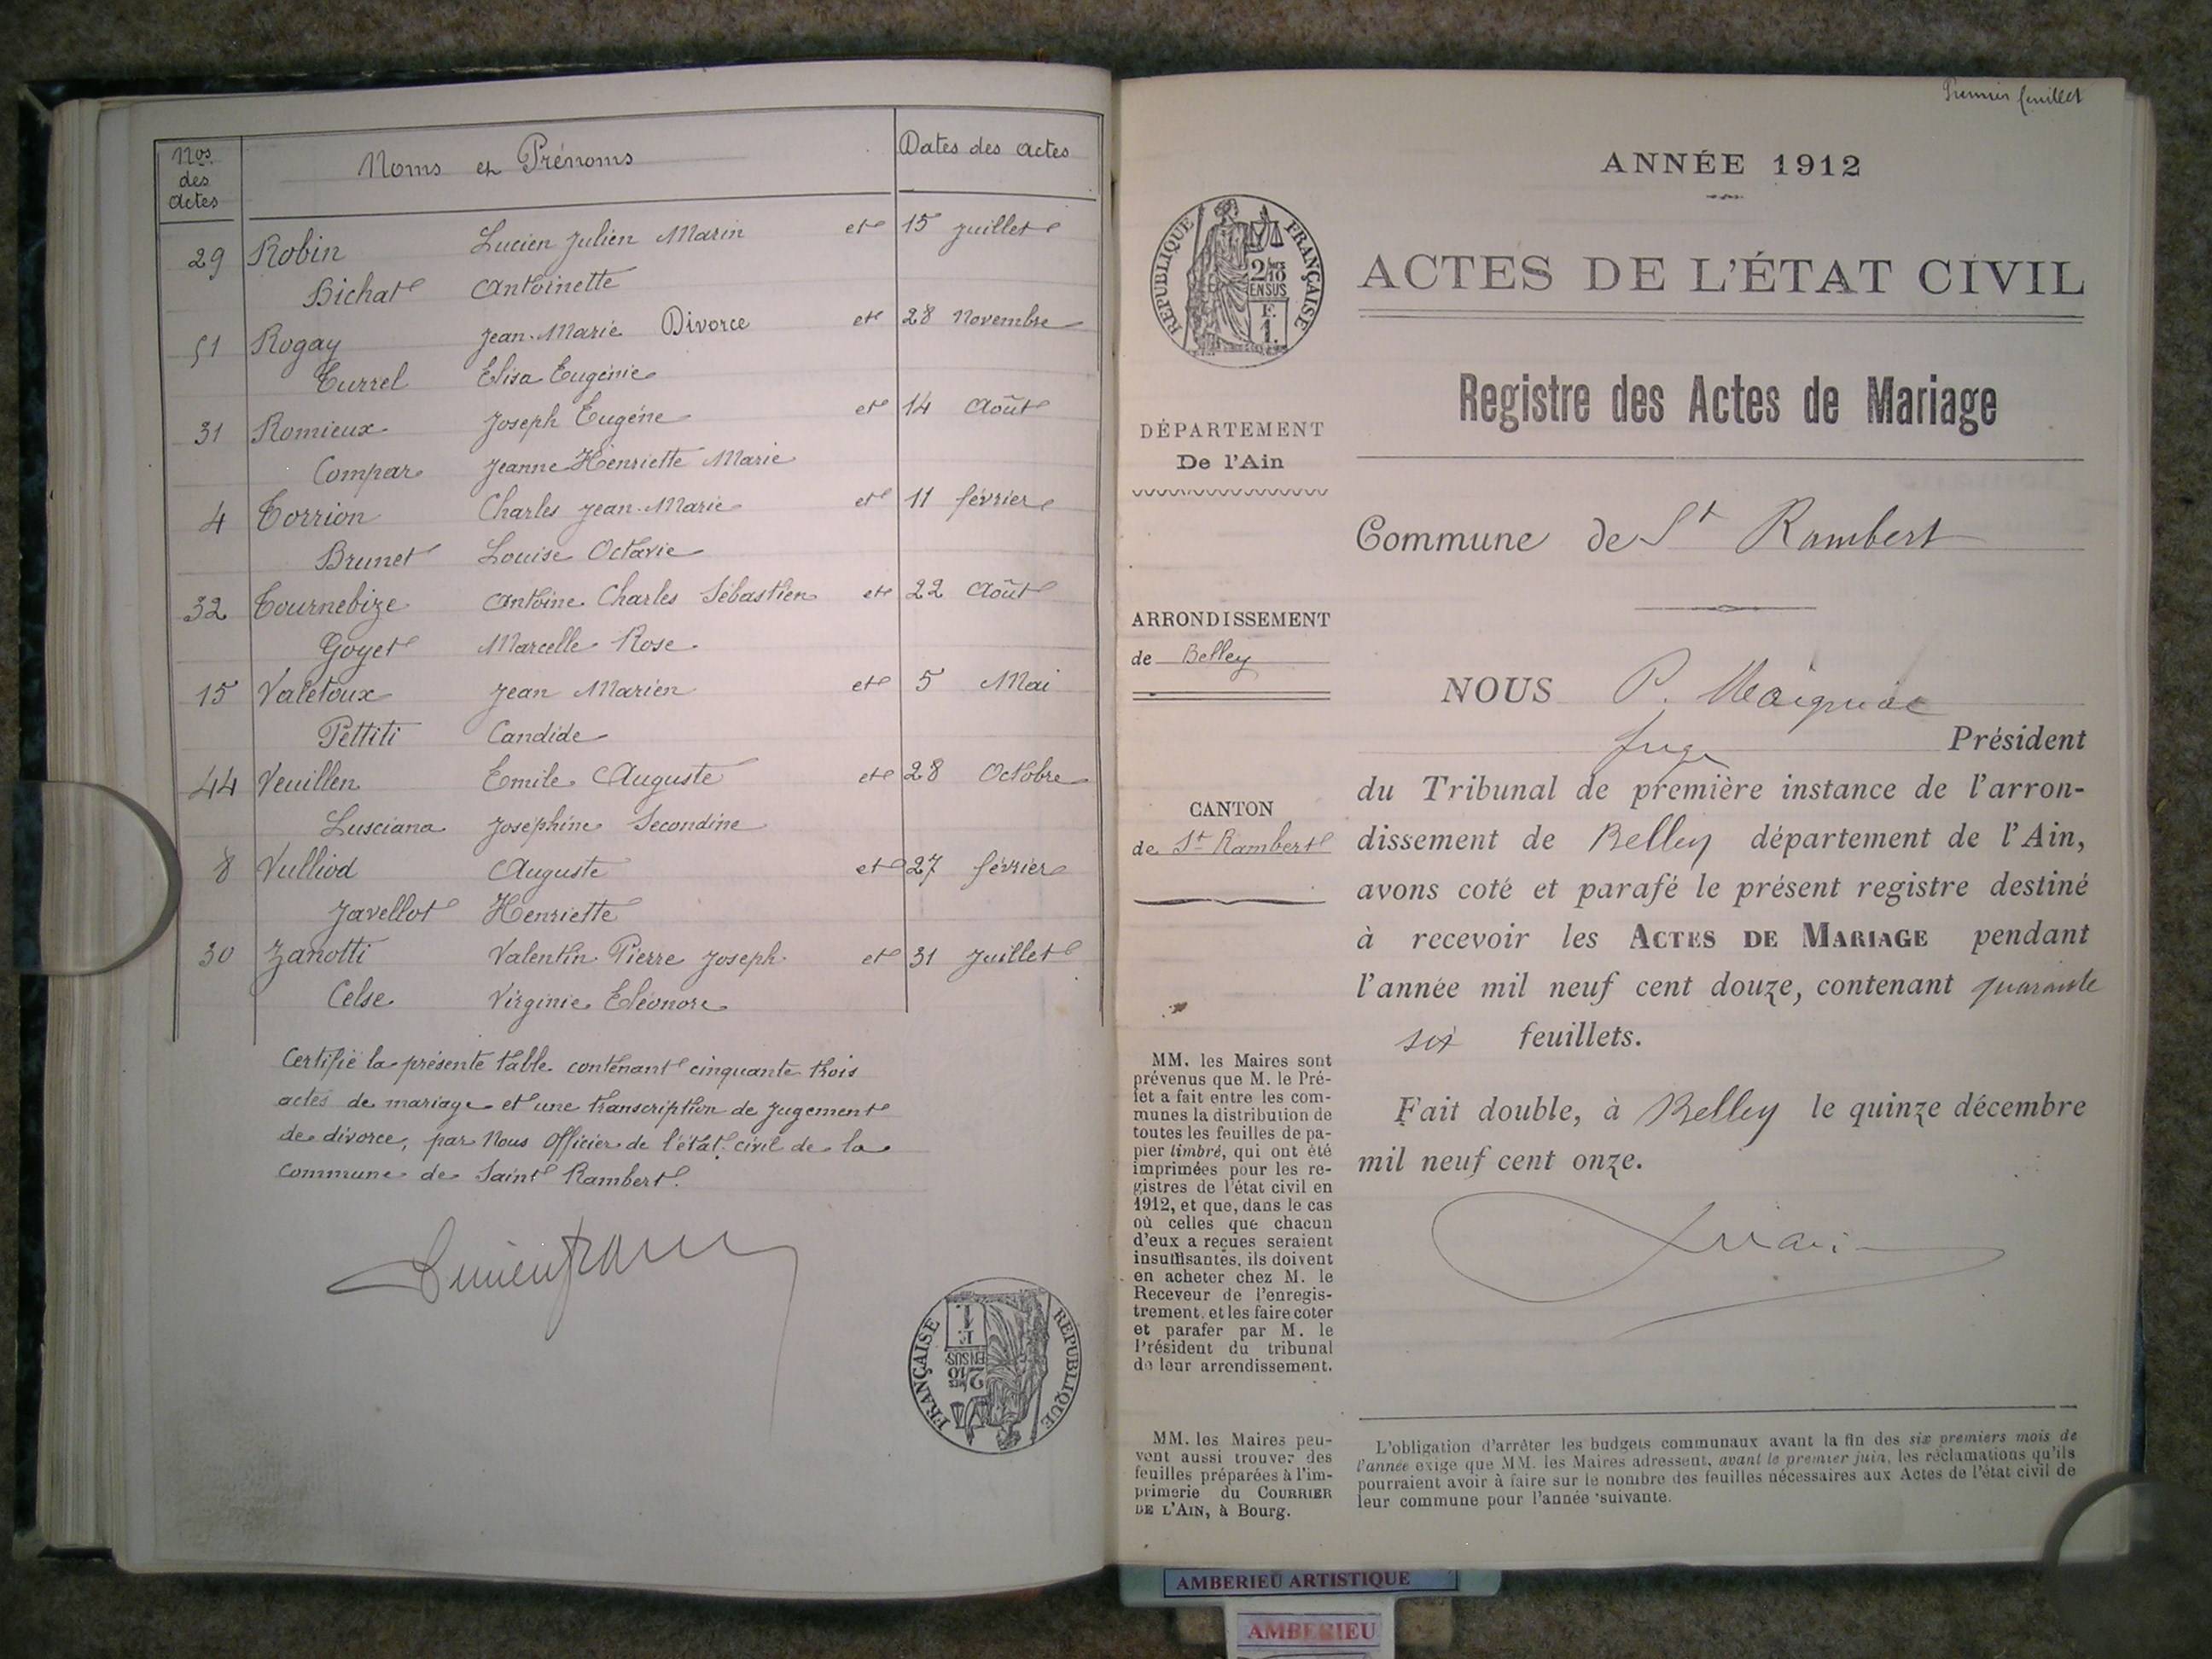 Nos des actes Noms et Prénoms Dates des actes
29 Robin Lucien Julien Marin et 15 juillet
Bichat Antoinette
51 Rogay Jean-Marie Divorce et 28 Novembre
Turrel Elisa Eugénie
31 Romieux Joseph Eugène et 14 Août
Compar Jeanne Henriette Marie
4 Torrion Charles Jean-Marie et 11 février
Brunet Louise Octavie
32 Tournebize Antoine Charles Sébastien et 22 Août
Goyet Marcelle Rose
15 Valetoux Jean Marien et 5 Mai
Pettiti Candide
44 Veuillen Emile Auguste et 28 Octobre
Lusciana Joséphine Secondine
8 Vulliod Auguste et 27 février
Javellot Henriette
30 Zanotti Valentin Pierre Joseph et 31 Juillet
Celse Virginie Eléonore
Certifié la présente table contenant cinquante trois
actes de mariage et une transcription de jugement
de divorce, par Nous Officier de l'état civil de la
commune de Saint Rambert.
RÉPUBLIQUE FRANÇAISE
2/10 EN SUS
F. 1.
Premier feuillet
ANNÉE 1912
RÉPUBLIQUE FRANÇAISE
2/10 EN SUS
F. 1.
ACTES DE L'ÉTAT CIVIL
Registre des Actes de Mariage
DÉPARTEMENT
De l'Ain
Commune de St Rambert
ARRONDISSEMENT
de Belley
CANTON
de St Rambert
NOUS P.
Juge Président
du Tribunal de première instance de l'arron-
dissement de Belley département de l'Ain,
avons coté et parafé le présent registre destiné
à recevoir les ACTES DE MARIAGE pendant
l'année mil neuf cent douze, contenant quarante
six feuillets.
Fait double, à Belley le quinze décembre
mil neuf cent onze.
MM. les Maires sont
prévenus que M. le Pré-
fet a fait entre les com-
munes la distribution de
toutes les feuilles de pa-
pier timbré, qui ont été
imprimées pour les re-
gistres de l'état civil en
1912, et que, dans le cas
où celles que chacun
d'eux a reçues seraient
insuffisantes, ils doivent
en acheter chez M. le
Receveur de l'enregis-
trement, et les faire coter
et parafer par M. le
Président du tribunal
de leur arrondissement.
MM. les Maires peu-
vent aussi trouver des
feuilles préparées à l'im-
primerie du COURRIER
DE L'AIN, à Bourg.
L'obligation d'arrêter les budgets communaux avant la fin des six premiers mois de
l'année exige que MM. les Maires adressent, avant le premier juin, les réclamations qu'ils
pourraient avoir à faire sur le nombre des feuilles nécessaires aux Actes de l'état civil de
leur commune pour l'année suivante.
AMBERIEU ARTISTIQUE
AMBERIEU